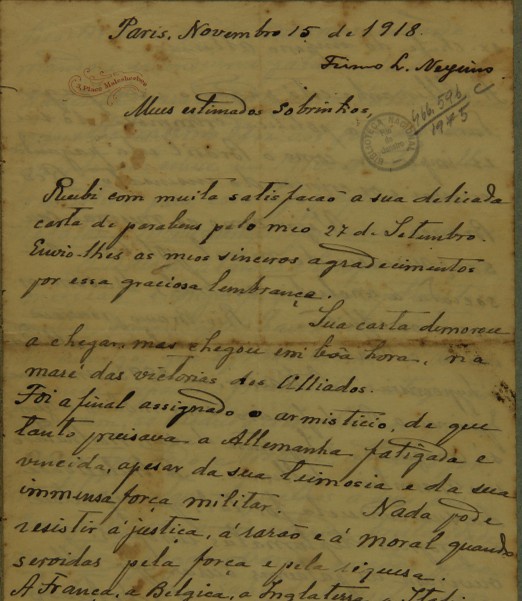 Paris, Novembro 15 de 1918.
3, Place Malesherbes
Meus estimados sobrinhos,
BIBLIOTECA NACIONAL
466.596
1945
Recibi com muita satisfacão a sua delicada
carta de parabens pelo meo 27 de Setembro.
Envio-lhes os meos sinceros agradecimentos
por essa graciosa lembrança.
Sua carta demorou
a chegar, mas chegou em bôa hora, na
maré das victorias dos Alliados.
Foi afinal assignado o armisticio, de que
tanto precisava a Allemanha fatigada e
vencida, apesar da sua teimosia e da sua
immensa força militar. Nada pode
resistir á justiça, á rasão e á moral quando
servidas pela força e pela riquesa.
A França, a Belgica, a Inglaterra, a